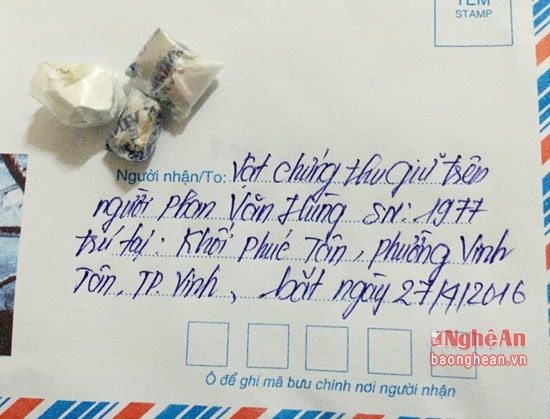 TEM
STAMP
Người nhận/To: Vật chứng thu giữ trên
người Phan Văn Hùng SN: 1977
trú tại: Khối Phúc Tân, phường Vinh
Tân, TP. Vinh, bắt ngày 27/4/2016
NghệAn
baonghean.vn
Ô để ghi mã bưu chính nơi người nhận